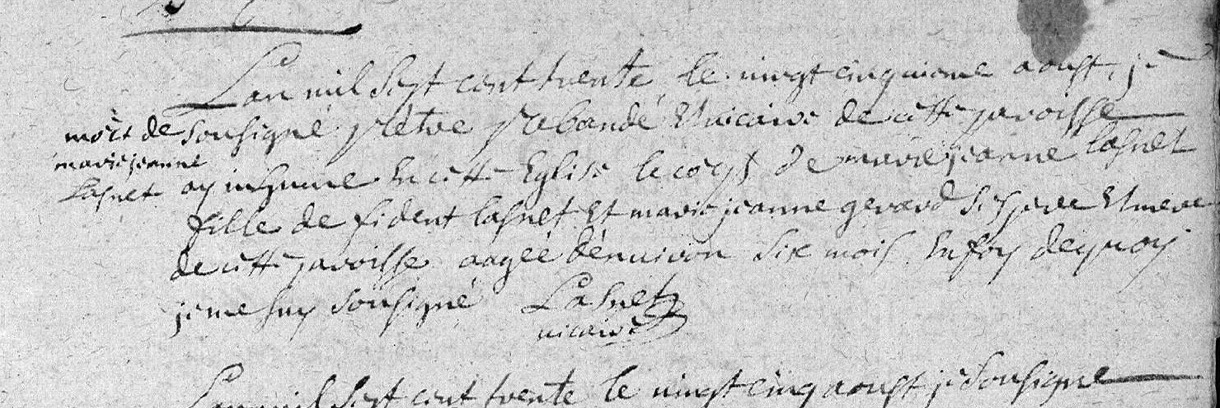 Lan mil sept cent trente le vingt cinquieme aoust, je
mort de
marie jeanne
Lasnet
sousigné prêtre prebandé & vicaire de cette paroisse
ay inhumé en cette Eglise le corps de marie jeanne lasnet
fille de fident lasnet et marie jeanne gerard ses pere & mere
de cette paroisse aagée d'environ six mois. En foy de quoy
je me suy sousigné Lasnet
vicaire
Lan mil sept cent trente le vingt cinq aoust je sousigné